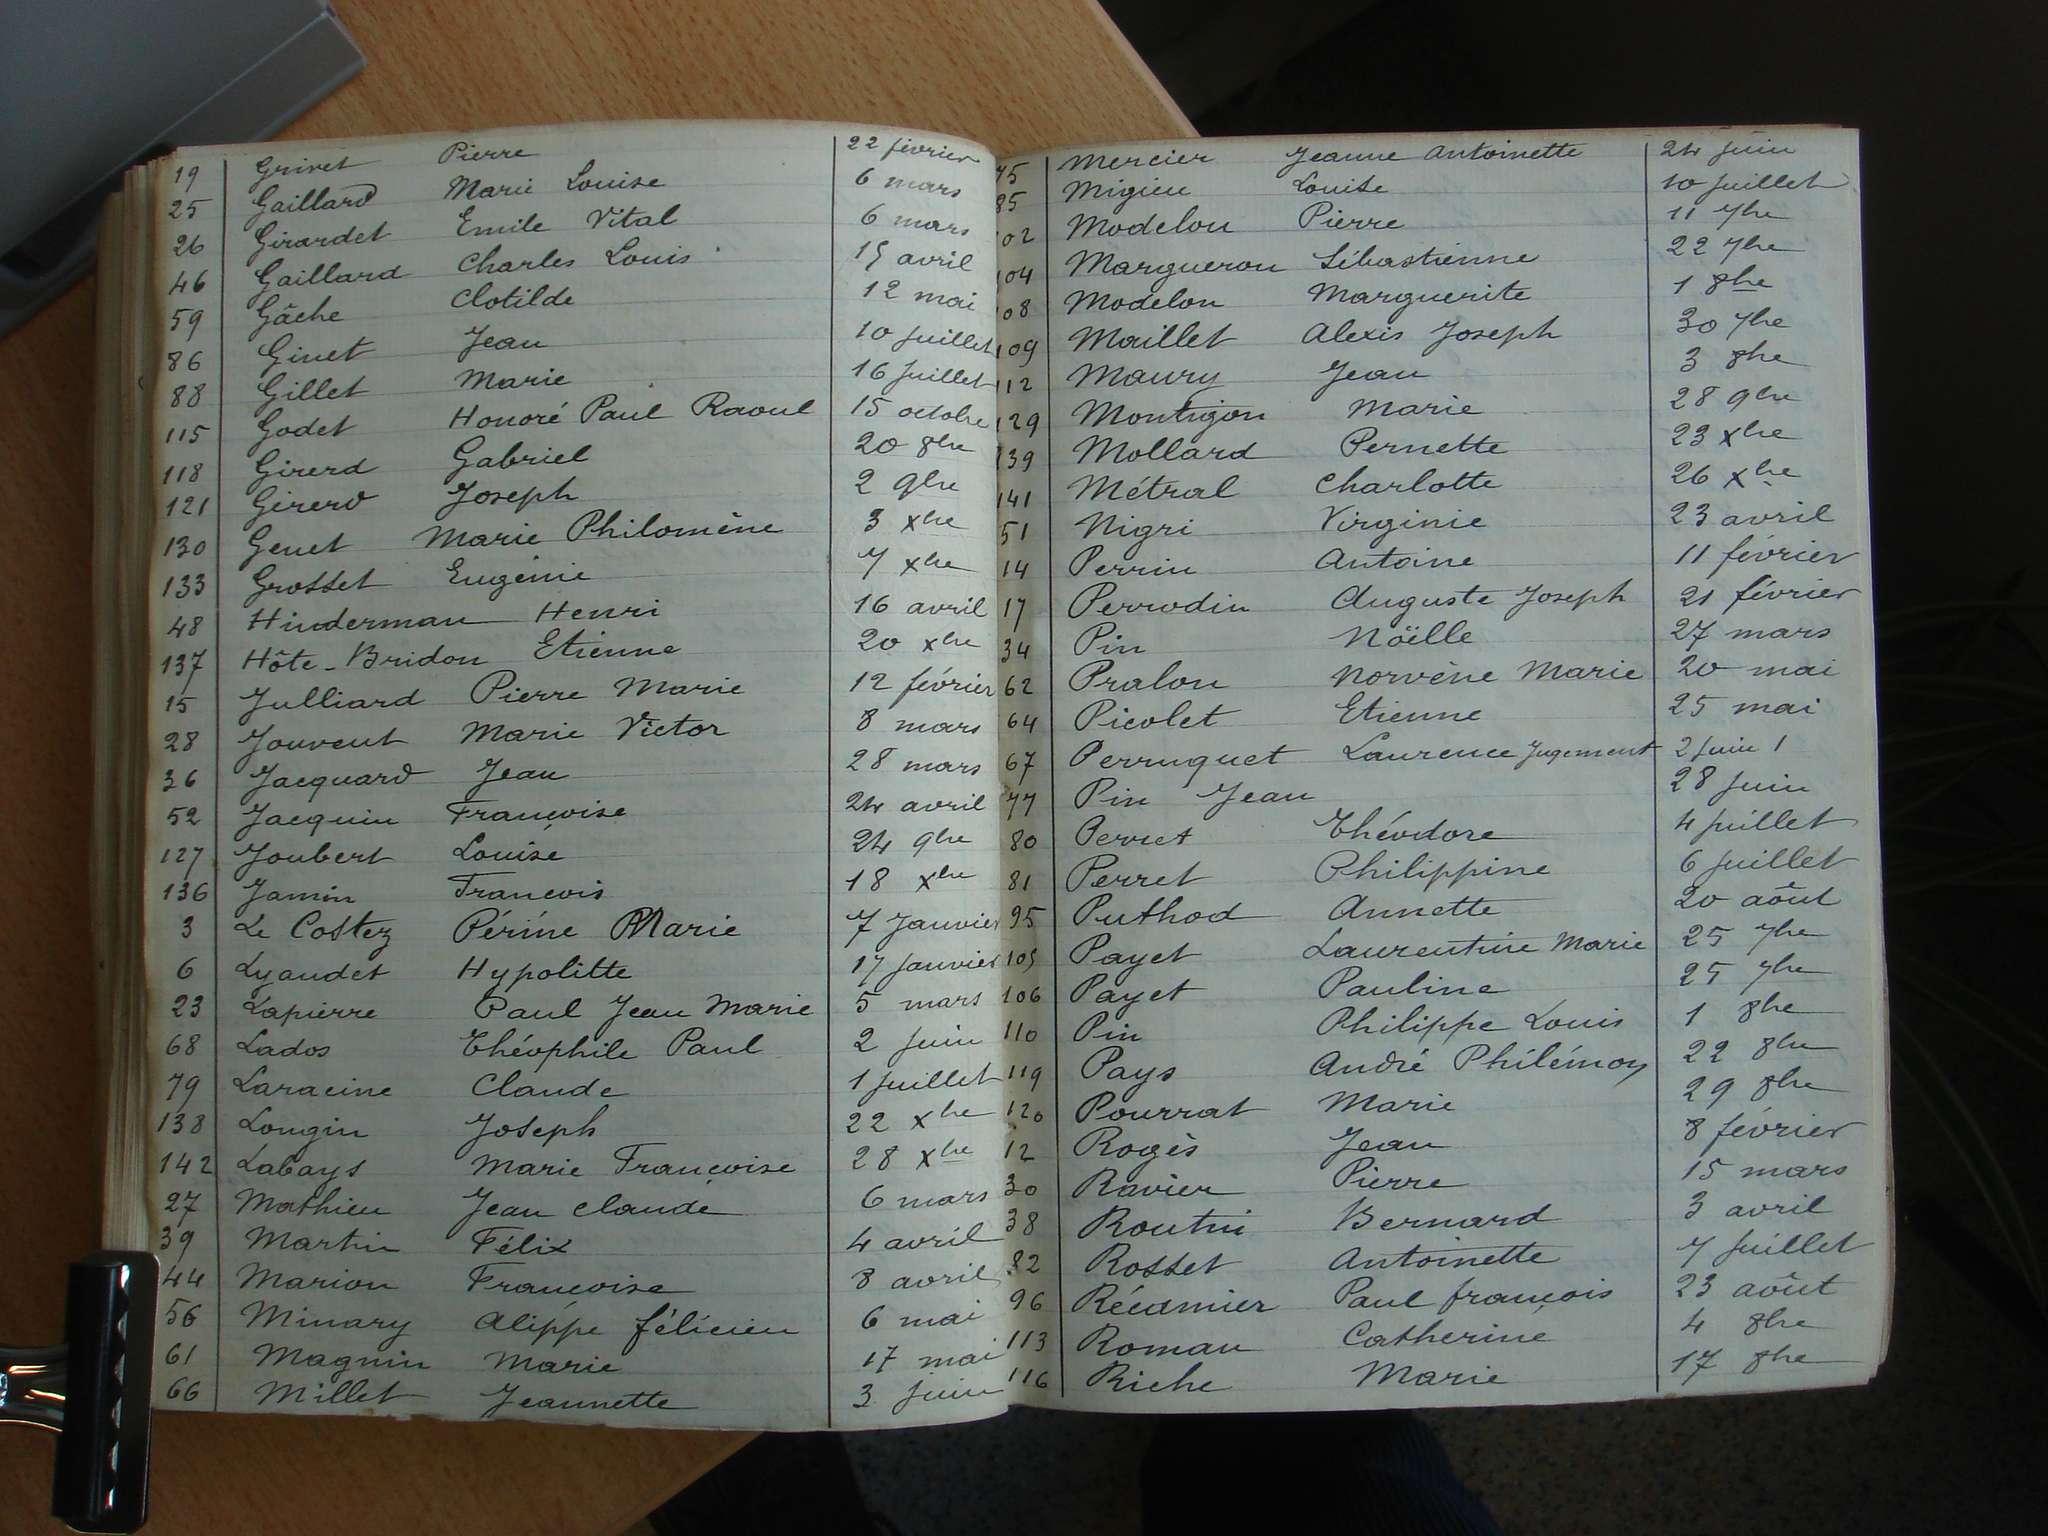 19 Grivet Pierre 22 février
25 Gaillard Marie Louise 6 mars
26 Girardet Emile Vital 6 mars
46 Gaillard Charles Louis 15 avril
59 Gâche Clotilde 12 mai
86 Ginet Jean 10 Juillet
88 Gillet Marie 16 Juillet
115 Godet Honoré Paul Raoul 15 octobre
118 Girerd Gabriel 20 8bre
121 Girerd Joseph 2 9bre
130 Genet Marie Philomène 3 xbre
133 Grosset Eugénie 7 xbre
48 Hinderman Henri 16 avril
137 Hôte-Bridon Etienne 20 xbre
15 Julliard Pierre Marie 12 février
28 Jouvent Marie Victor 8 mars
36 Jacquard Jean 28 mars
52 Jacquin Françoise 24 avril
127 Joubert Louise 24 9bre
136 Jamin François 18 xbre
3 Le Costez Périne Marie 7 Janvier
6 Lyaudet Hypolitte 17 Janvier
23 Lapierre Paul Jean Marie 5 mars
68 Lados Théophile Paul 2 Juin
79 Laracine Claude 1 Juillet
138 Longin Joseph 22 xbre
142 Labays Marie Françoise 28 xbre
27 Mathieu Jean Claude 6 mars
39 Martin Félix 4 avril
44 Marion Françoise 8 avril
56 Minary Alippe félicien 6 mai
61 Magnin Marie 17 mai
66 Millet Jeannette 3 Juin
75 Mercier Jeanne Antoinette 24 Juin
85 Migieu Louise 10 Juillet
102 Modelon Pierre 11 7bre
104 Margueron Sébastienne 22 7bre
108 Modelon Marguerite 1 8bre
109 Maillet Alexis Joseph 30 7bre
112 Maury Jean 3 8bre
129 Montigon Marie 28 9bre
139 Mollard Pernette 23 xbre
141 Métral Charlotte 26 xbre
51 Nigri Virginie 23 avril
14 Perrin Antoine 11 février
17 Perrodin Auguste Joseph 21 février
34 Pin Nöille 27 mars
62 Pralon Norvène Marie 20 mai
64 Picolet Etienne 25 mai
67 Perruquet Laurence Jugement 2 Juin 1
77 Pin Jean 28 Juin
80 Perret Théodore 4 Juillet
81 Perret Philippine 6 Juillet
95 Puthod Annette 20 août
105 Payet Laurentine Marie 25 7bre
106 Payet Pauline 25 7bre
110 Pin Philippe Louis 1 8bre
119 Pays André Philémon 22 8bre
120 Pourrat Marie 29 8bre
12 Rogès Jean 8 février
30 Ravier Pierre 15 mars
38 Routin Bernard 3 avril
82 Rosset Antoinette 7 Juillet
96 Récamier Paul françois 23 août
113 Roman Catherine 4 8bre
116 Riche Marie 17 8bre